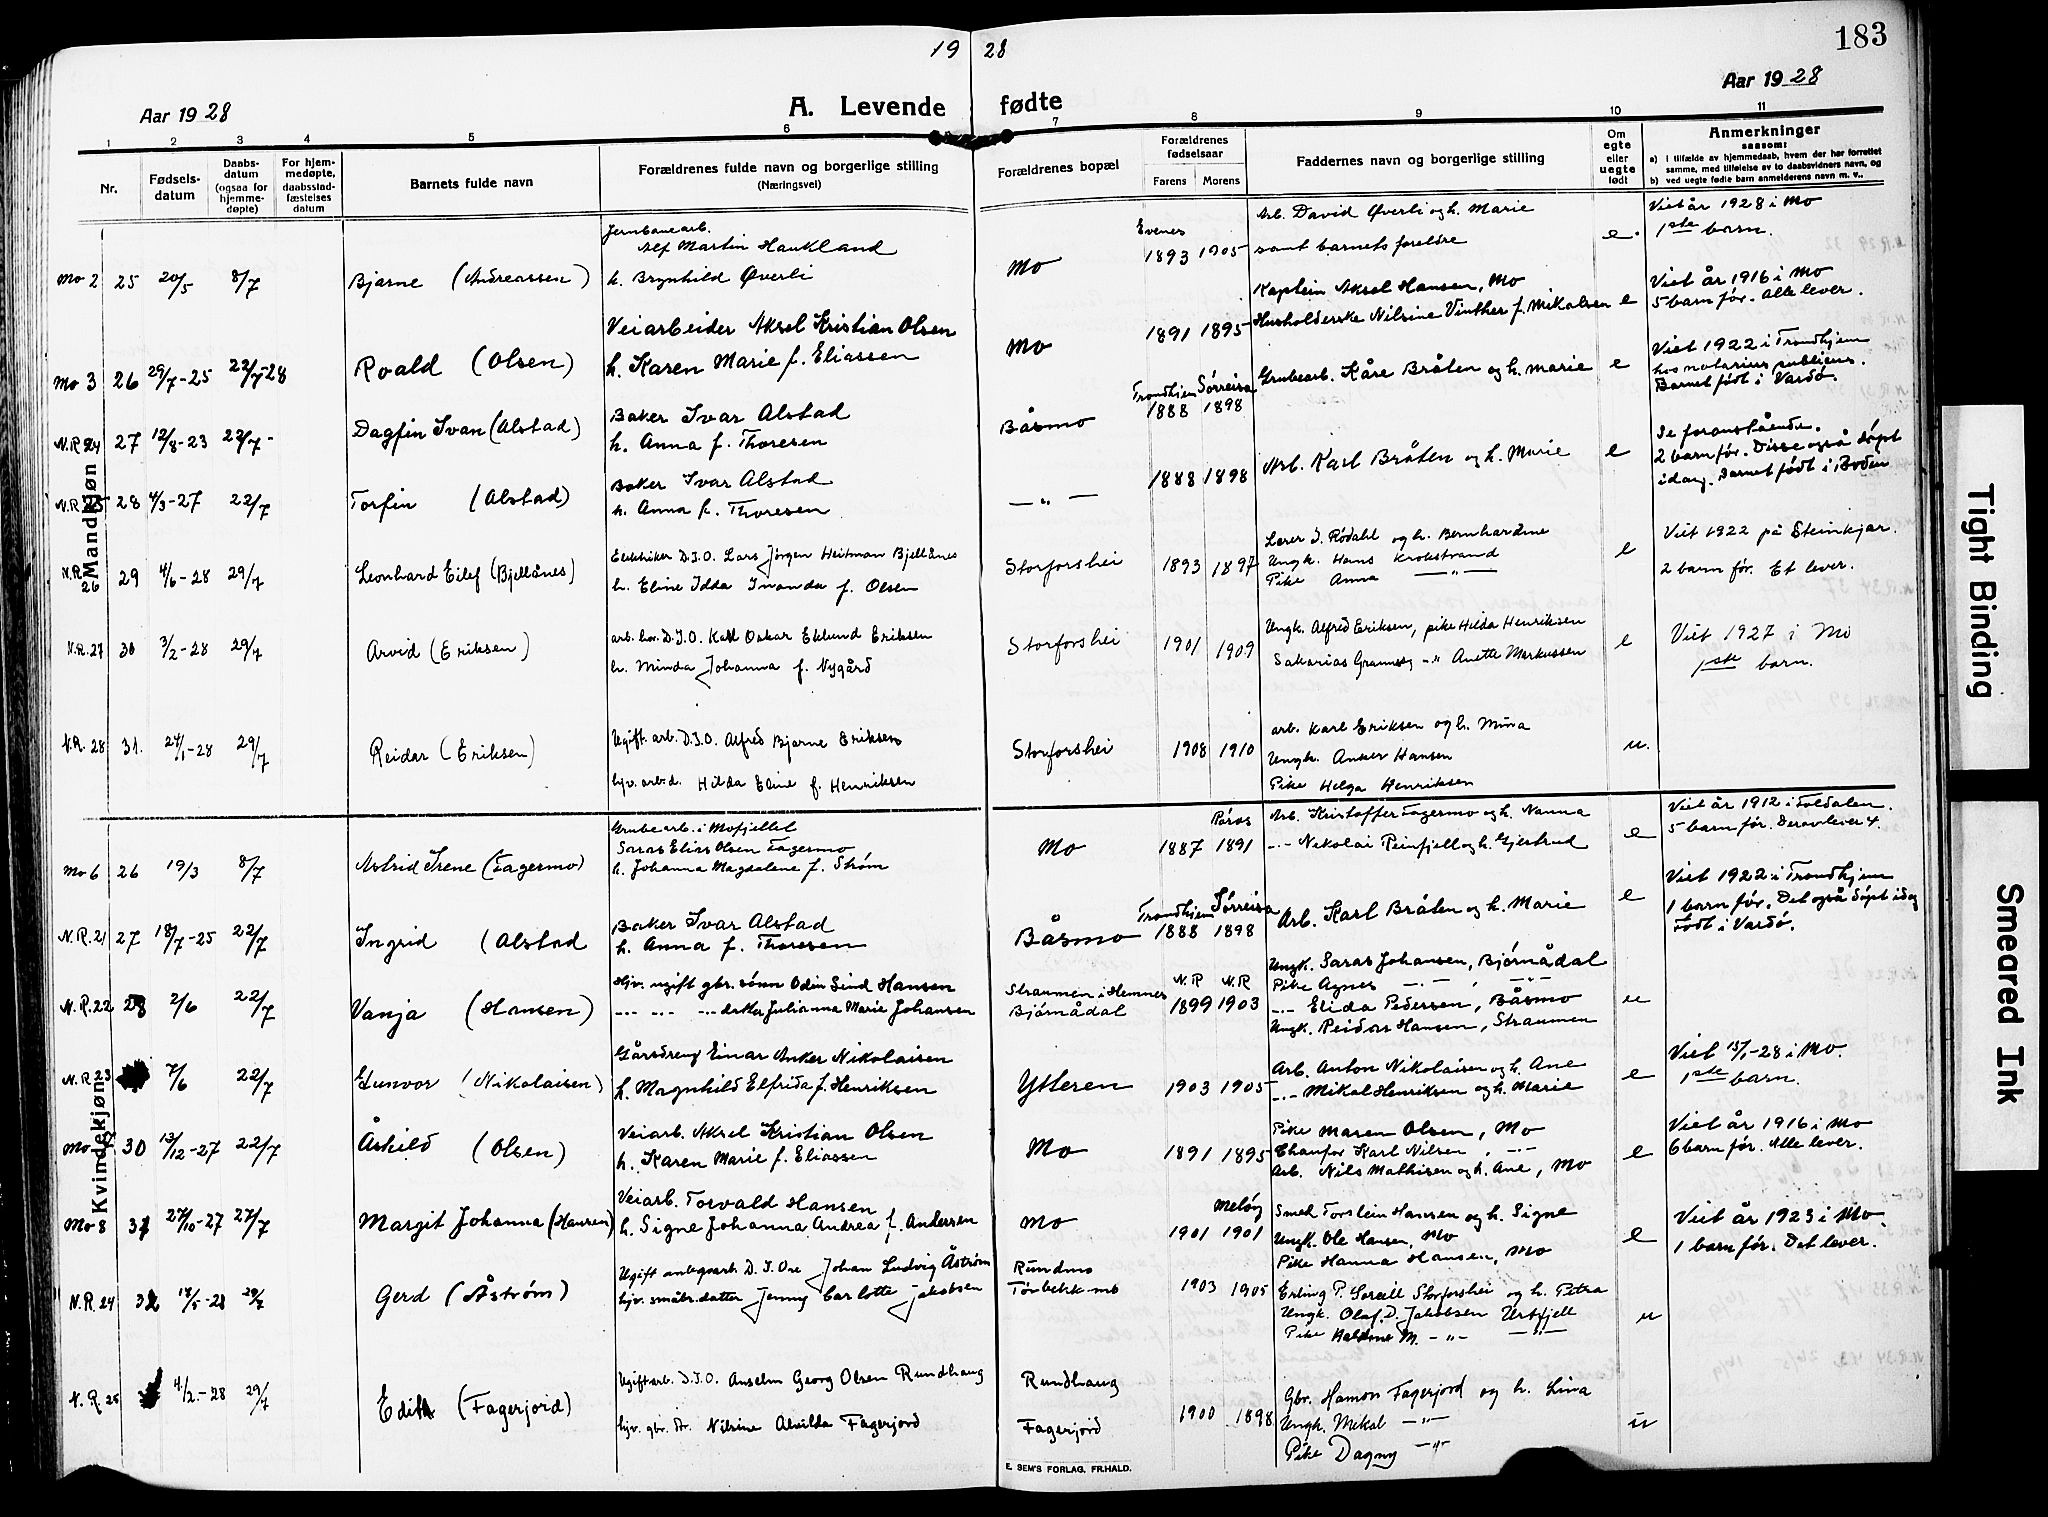 19 28
183
Aar 1928
A. Levende fødte
Aar 1928
1 2 3 4 5 6 7 8 9 10 11
Nr.
Fødsels-
datum
Daabs-
datum
(ogsaa for
hjemme-
døpte)
For hjem-
medøpte,
daabsstad-
fæstelses
datum
Barnets fulde navn
Forældrenes fulde navn og borgerlige stilling
(Næringsvei)
Forældrenes bopæl
Forældrenes
fødselsaar
Farens Morens
Faddernes navn og borgerlige stilling
Om
egte
eller
uegte
født
Anmerkninger
saasom:
a) i tilfælde av hjemmedaab, hvem der har forrettet
samme, med tilføielse av to daabsvidners navn, og
b) ved uegte fødte barn anmelderens navn m. v..
Mandkjøn
Mo 2 25 20/5 8/7 Bjarne (Andreassen)
Jernbanearb.
Alf Martin Haukland
h. Brynhild Øverli
Mo
Evenes
1893 1905
Arb. David Øverli og h. Marie
samt barnets foreldre
e.
Viet år 1928 i Mo
1ste barn.
Mo 3 26 29/7-25 22/7-28 Roald (Olsen)
Veiarbeider Aksel Kristian Olsen
h. Karen Marie f. Eliassen
Mo
1891 1895
Kaptein Aksel Hansen, Mo
Husholderske Nilsine Vinther f. Mikalsen
e
Viet år 1916 i Mo
5 barn før. Alle lever.
N.R 24 27 12/8-23 22/7- Dagfin Ivan (Alstad)
Baker Ivar Alstad
h. Anna f. Thoresen
Båsmo
Trondhjem Sørreisa
1888 1898
Grubearb. Kåre Bråten og h. Marie
e
Viet 1922 i Trondhjem
hos notarius publicus.
Barnet født i Vardø.
N.R 25 28 4/3-27 22/7 Torfin (Alstad)
Baker Ivar Alstad
h. Anna f. Thoresen
— " —
1888 1898
Arb. Karl Bråten og h. Marie
e
Se foranstående.
2 barn før. Disse også døpt
idag. Barnet født i Boden
N.R. 26 29 4/6-28 29/7 Leonhard Eilef (Bjellånes)
Elektriker D.I.O. Lars Jørgen Heitman Bjellånes
h. Eline Idda Inanda f. Olsen
Storforshei
1893 1897
Lærer I. Rødahl og h. Bernhardine
Ungk. Hans Krokstrand
Pike Anna — " —
e
Viet 1922 på Steinkjær.
2 barn før. Et lever.
N.R. 27 30 3/2-28 29/7 Arvid (Eriksen)
arb. hos. D.I.O. Karl Oskar Eklund Eriksen
h. Minda Johanna f. Nygård
Storforshei
1901 1909
Ungk. Alfred Eriksen, pike Hilda Henriksen
Sakarias — " — Anette Markussen
e
Viet 1927 i Mo
1ste barn.
N.R. 28 31. 24/1-28 29/7 Reidar (Eriksen)
Ugift. arb. D.I.O. Alfred Bjarne Eriksen
hjv. arb.d. Hilda Eline f. Henriksen
Storforshei
1908 1910
arb. Karl Eriksen og h. Mina
Ungk. Anker Hansen
Pike Helga Henriksen
u.
Kvindekjøn
Mo 6 26 19/3 8/7 Astrid Irene (Fagermo)
Grubearb. i Mofjellet
Saras Elias Olsen Fagermo
h. Johanna Magdalene f. Strøm
Mo
Røros
1887 1891
Arb. Kristoffer Fagermo og h. Nanna
-.- Nikolai Reinfjell og h. Gjertrud
e
Viet år 1912 i Foldalen.
5 barn før. Derav lever 4.
N.R. 21 27 18/7-25 22/7 Ingrid (Alstad
Baker Ivar Alstad
h. Anna f. Thoresen
Båsmo
Trondhjem Sørreisa
1888 1898
Arb. Karl Bråten og h. Marie
e
Viet 1922 i Trondhjem
1 barn før. Det også døpt idag
Født i Vardø.
N.R. 22 28 2/6 22/7 Vanja (Hansen)
Hjv. ugift gbr. sønn Odin Sind Hansen
-.- -.- -.- datter Julianna Marie Johansen
Straumen i Hemnes
Bjørnådal
N.R N.R
1899 1903
Ungk. Saras Johansen, Bjørnådal
Pike Agnes -.- , -.-
-.- Elida Pedersen, Båsmo
Ungk. Reidar Hansen, Straumen
u
N.R 23 7/6 22/7 Gunvor (Nikolaisen)
Gårsdreng Einar Anker Nikolaisen
h. Magnhild Elfrida f. Henriksen
Ytteren
1903 1905
Arb. Anton Nikolaisen og h. Ane
-.- Mikal Henriksen og h. Marie
e
Viet 15/1-28 i Mo.
1ste barn.
Mo 7 30 13/12-27 22/7 Åshild (Olsen)
Veiarb. Aksel Kristian Olsen
h. Karen Marie f. Eliassen
Mo
1891 1895
Pike Maren Olsen, Mo
Chaufør Karl Nilsen, -.-
Arb. Nils Mathisen og h. Ane, Mo
e
Viet år 1916 i Mo
6 barn før. Alle lever.
Mo 8 31 27/10-27 27/7 Margit Johanna (Hansen)
Veiarb. Torvald Hansen
h. Signe Johanna Andrea f. Andersen
Mo
Meløy
1901 1901
Smed Torstein Hansen og h. Signe
Ungk. Ole Hansen, Mo
Pike Hanna Hansen, Mo
e
Viet år 1923 i Mo.
1 barn før. Det lever.
N.R. 24 32 18/5-28 29/7 Gerd (Åstrøm)
Ugift anlegsarb. D. I. Ore Johan Ludvig Åstrøm
hjv. småbr. datter Jenny Carlotte Jakobsen
Rundmo
1903 1905
Erling P. Storforshei og h. Petra
Ungk. Olaf. D. Jakobsen Urtfjell
Pike M. -"- — " —
u
N.R. 25 4/2.-28 29/7 Edith (Fagerjord)
Ugift arb. D.I.O. Anselm Georg Olsen Rundhaug
hjv. gbr. dr. Nilsine Alvilda Fagerjord
Rundhaug
Fagerjord
1900 1898
Gbr. Hamon Fagerjord og h. Lina
Ungk. Mikal — " —
Pike Dagny — " —
u
E. SEM'S FORLAG. FR.HALD.
Tight Binding
Smeared Ink